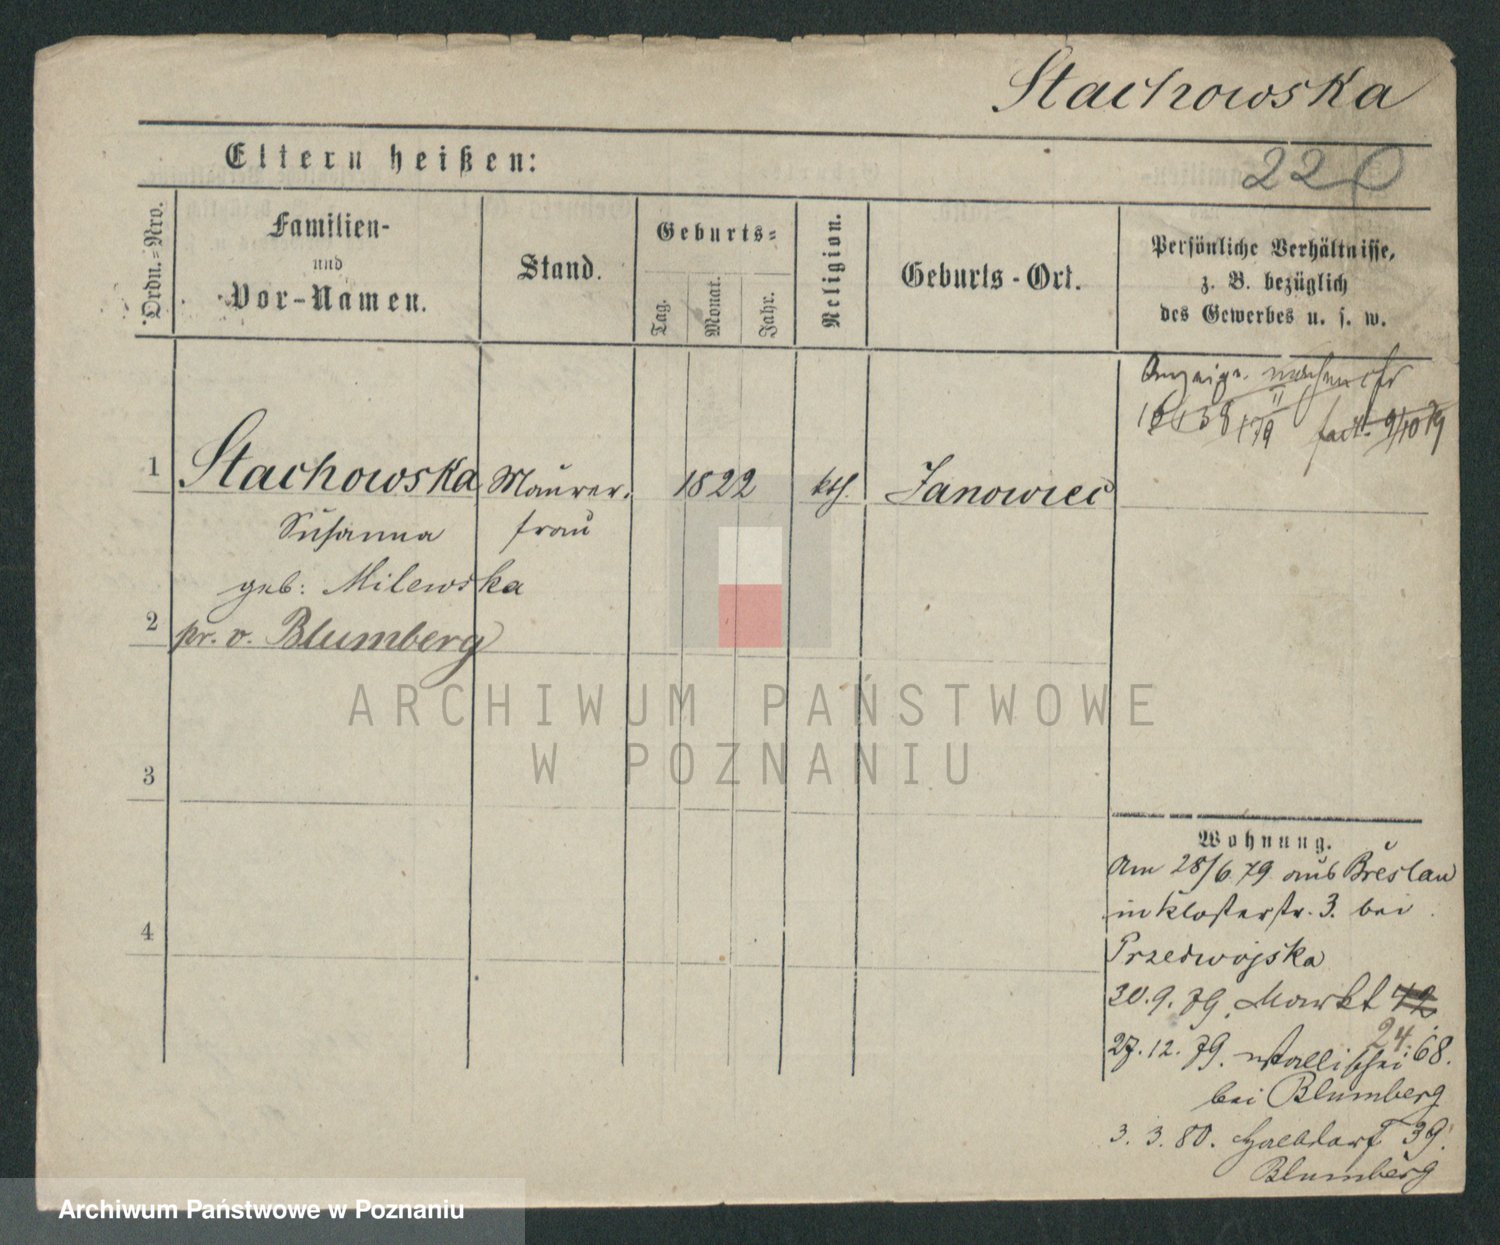 Stachowska
220
Eltern heißen:
Ordn.-Nro.
Familien-
und
Vor-Namen.
Stand.
Geburts-
Tag.
Monat.
Jahr.
Religion.
Geburts-Ort.
Persönliche Verhältnisse,
z. B. bezüglich
des Gewerbes u. s. w.
1 Stachowska Maurer- 1822 kth. Janowiec
Susanna frau
geb: Milewska
2 pr. v. Blumberg
ARCHIWUM PAŃSTWOWE
W POZNANIU
3
Wohnung.
Am 28/6 79 aus Breslau
in Klosterstr. 3. bei
4
Przedwojska
30.9.79. Markt
24.
27.12.79. 68.
bei Blumberg
3.3.80. Halbdorf 39.
Blumberg
Archiwum Państwowe w Poznaniu